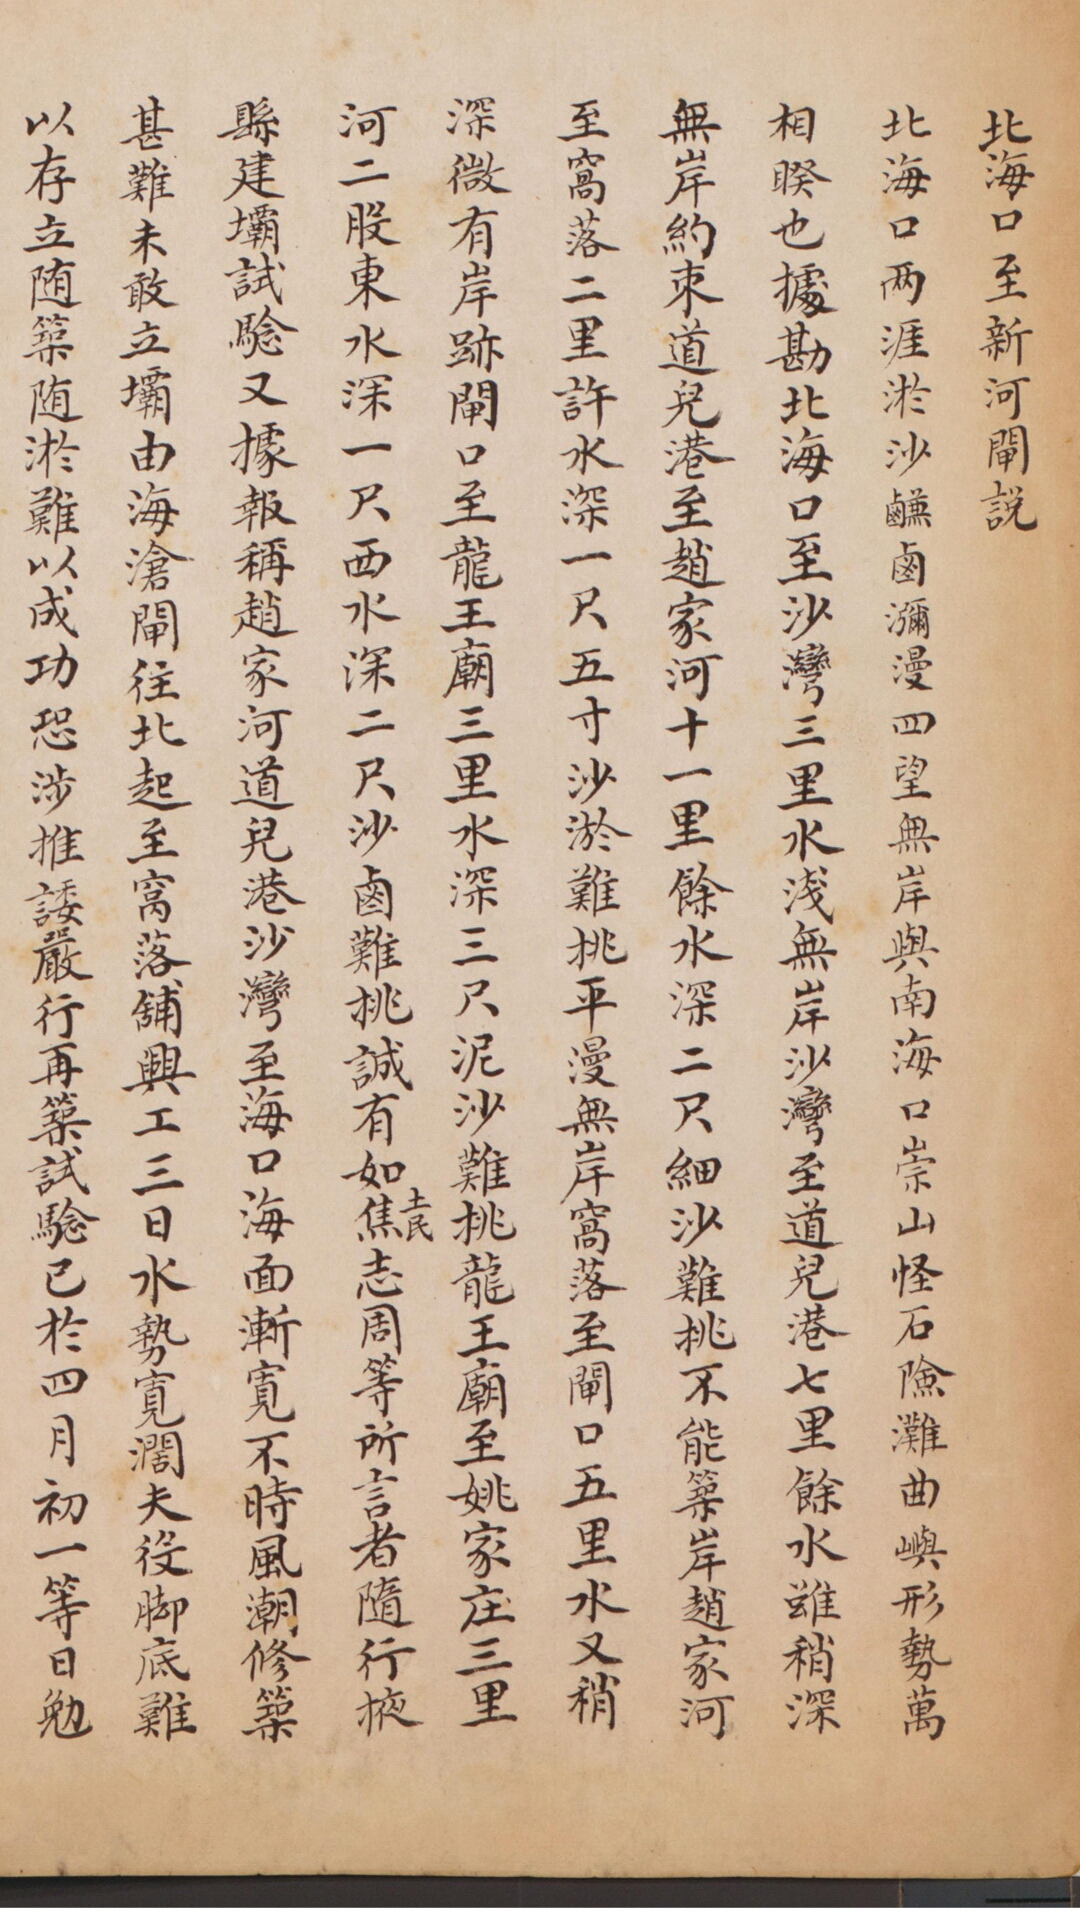 北海口至新河閘説
北海口两涯淤沙鹻鹵瀰漫四望無岸與南海口崇山怪石險灘曲嶼形勢萬
相暌也據勘北海口至沙灣三里水浅無岸沙灣至道兒港七里餘水雖稍深
無岸約束道兒港至趙家河十一里餘水深二尺細沙難挑不能築岸趙家河
至窩落二里許水深一尺五寸沙淤難挑平漫無岸窩落至閘口五里水又稍
深微有岸跡閘口至龍王廟三里水深三尺泥沙難挑龍王廟至姚家庄三里
河二股東水深一尺西水深二尺沙鹵難挑誠有如土民焦志周等所言者隨行掖
縣建壩試驗又據報稱趙家河道兒港沙灣至海口海面漸寬不時風潮修築
甚難未敢立壩由海滄閘往北起至窩落舖興工三日水勢寛濶夫役脚底難
以存立随築随淤難以成功恐涉推諉嚴行再築試驗已於四月初一等日勉